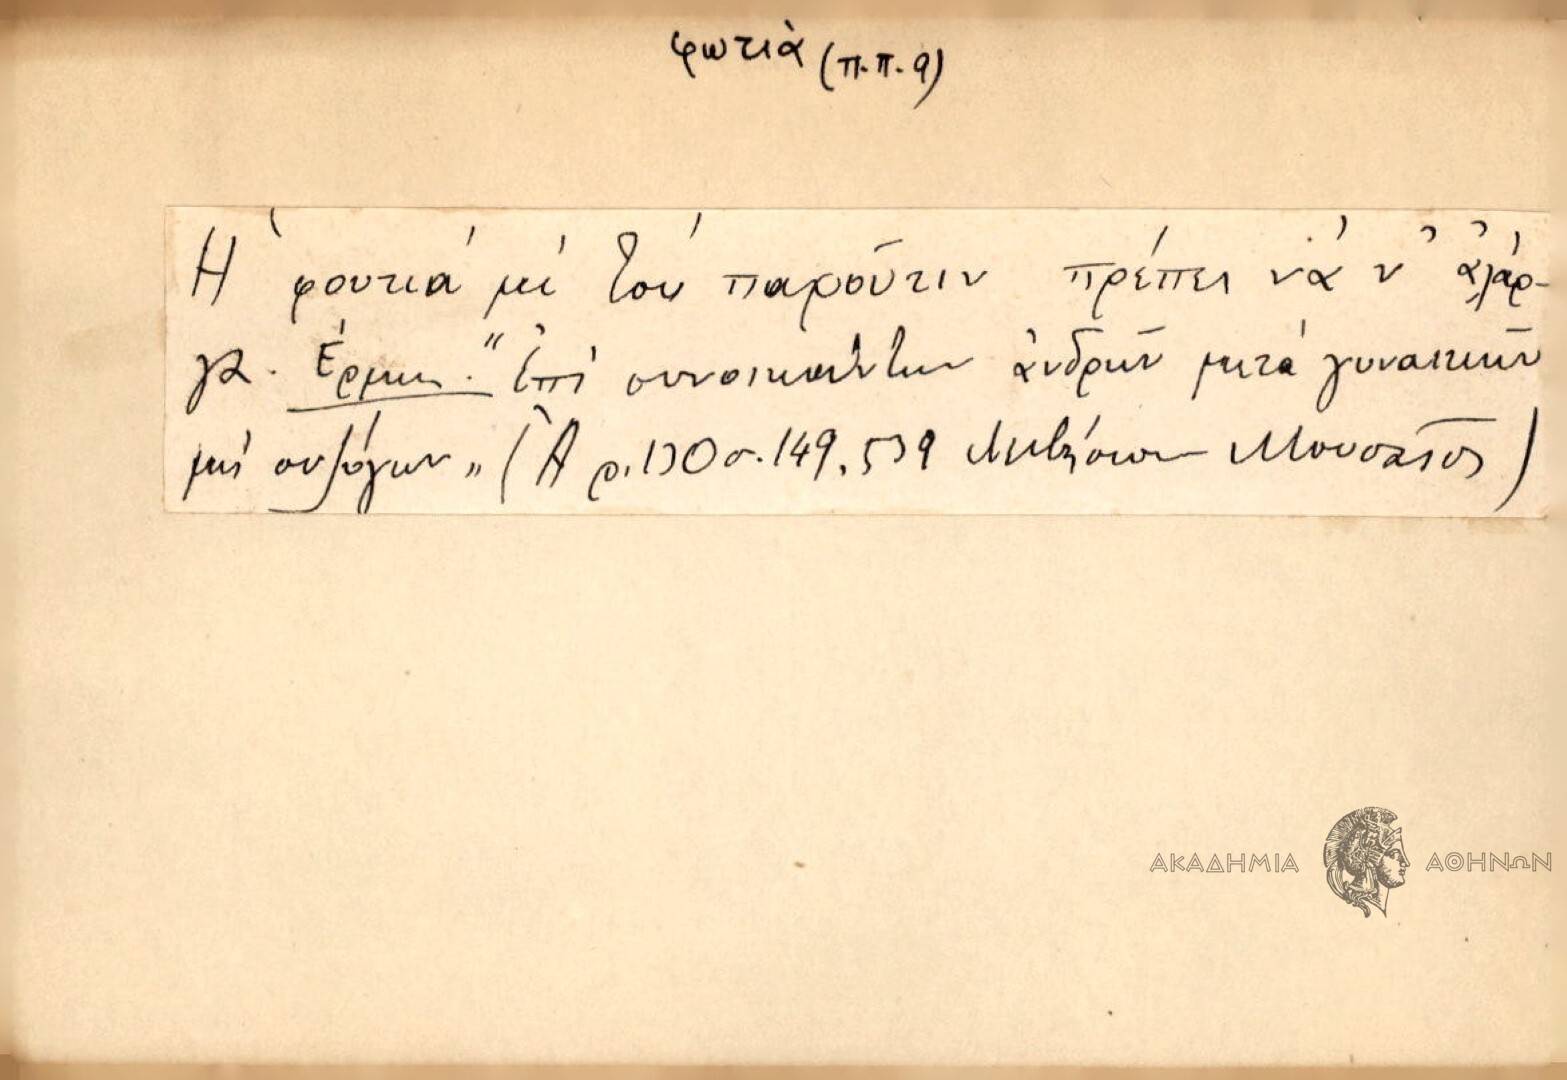 φωτιὰ (π.π. 9)
Ἡ φουτιά μέ τού παρούτιν πρέπει νά ν' ἀλάρ-
γα. Ἑρμην. "Ἐπί συνοικούντων ἀνδρῶν μετά γυναικῶν
μή συζύγων„ (Ἀρ. 130 σ. 149, 539 Μουσαῖος)
ΑΚΑΔΗΜΙΑ ΑΘΗΝΩΝ